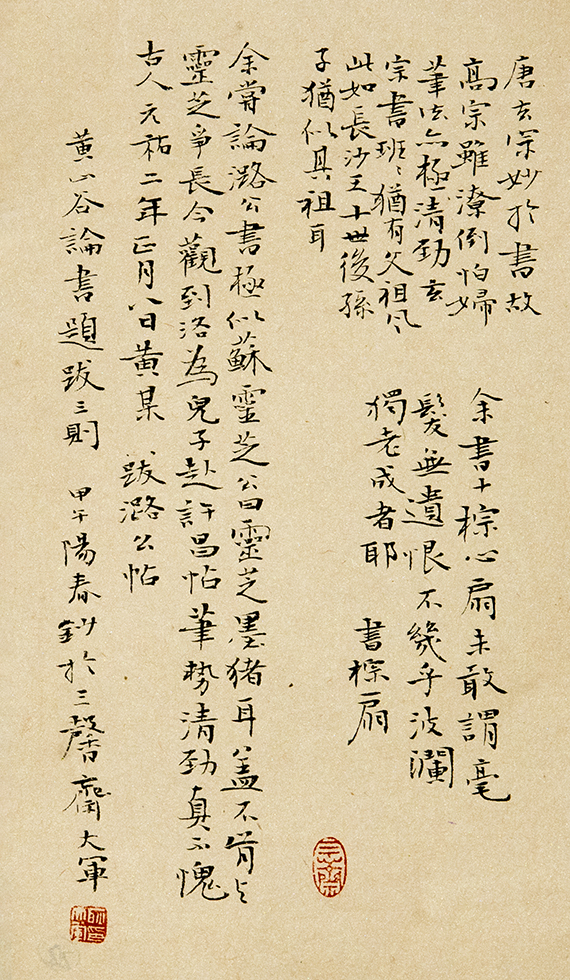 唐玄宗妙於書故
高宗雖潦倒怕婦
筆法亦極清勁玄
宗書班〻猶有父祖風
此如長沙王十世後孫
子猶似其祖耳
余書十椶心扇未敢謂毫
髮無遺恨不幾乎波瀾
獨老成者耶 書椶扇
余嘗論潞公書極似蘇靈芝公曰靈芝墨豬耳蓋不肯與
靈芝爭長今觀到洛為兒子赴許昌帖筆勢清勁真不愧
古人元祐二年正月八日黃某 跋潞公帖
黃山谷論書題跋三則 甲午陽春鈔於三馨齋大軍